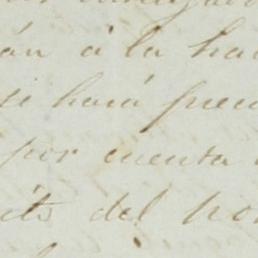 án á la ha
se hará pre
por cuenta
ito del no